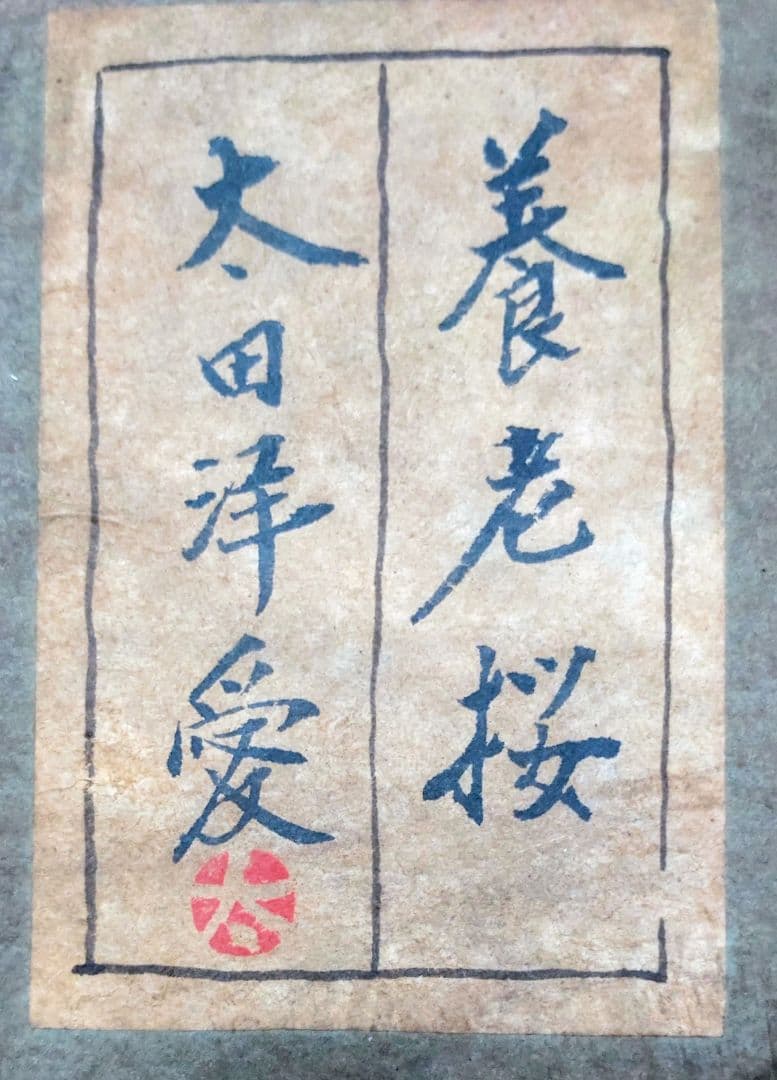 養老桜
太田洋愛